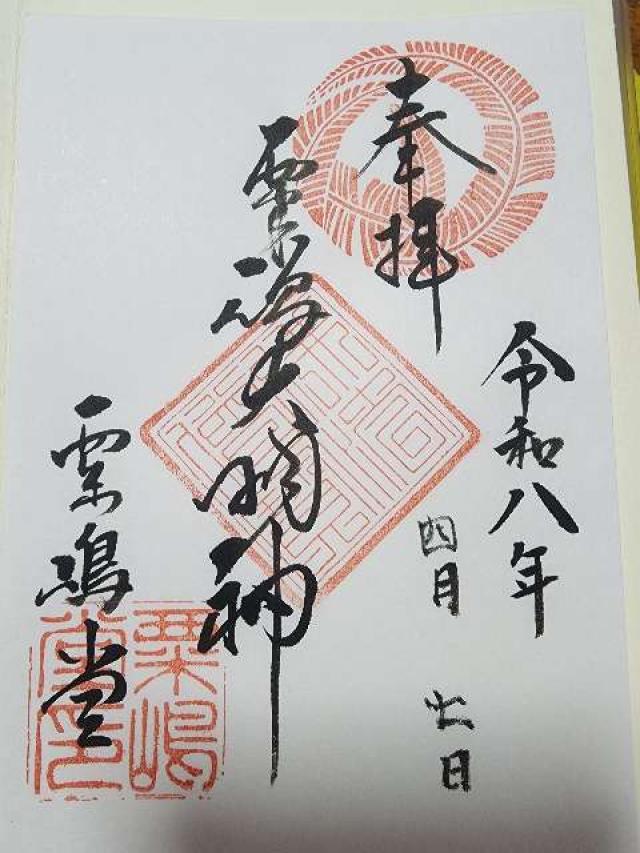 奉拝
令和八年
四月 七日
粟嶋大明神
粟嶋堂
粟嶋堂印